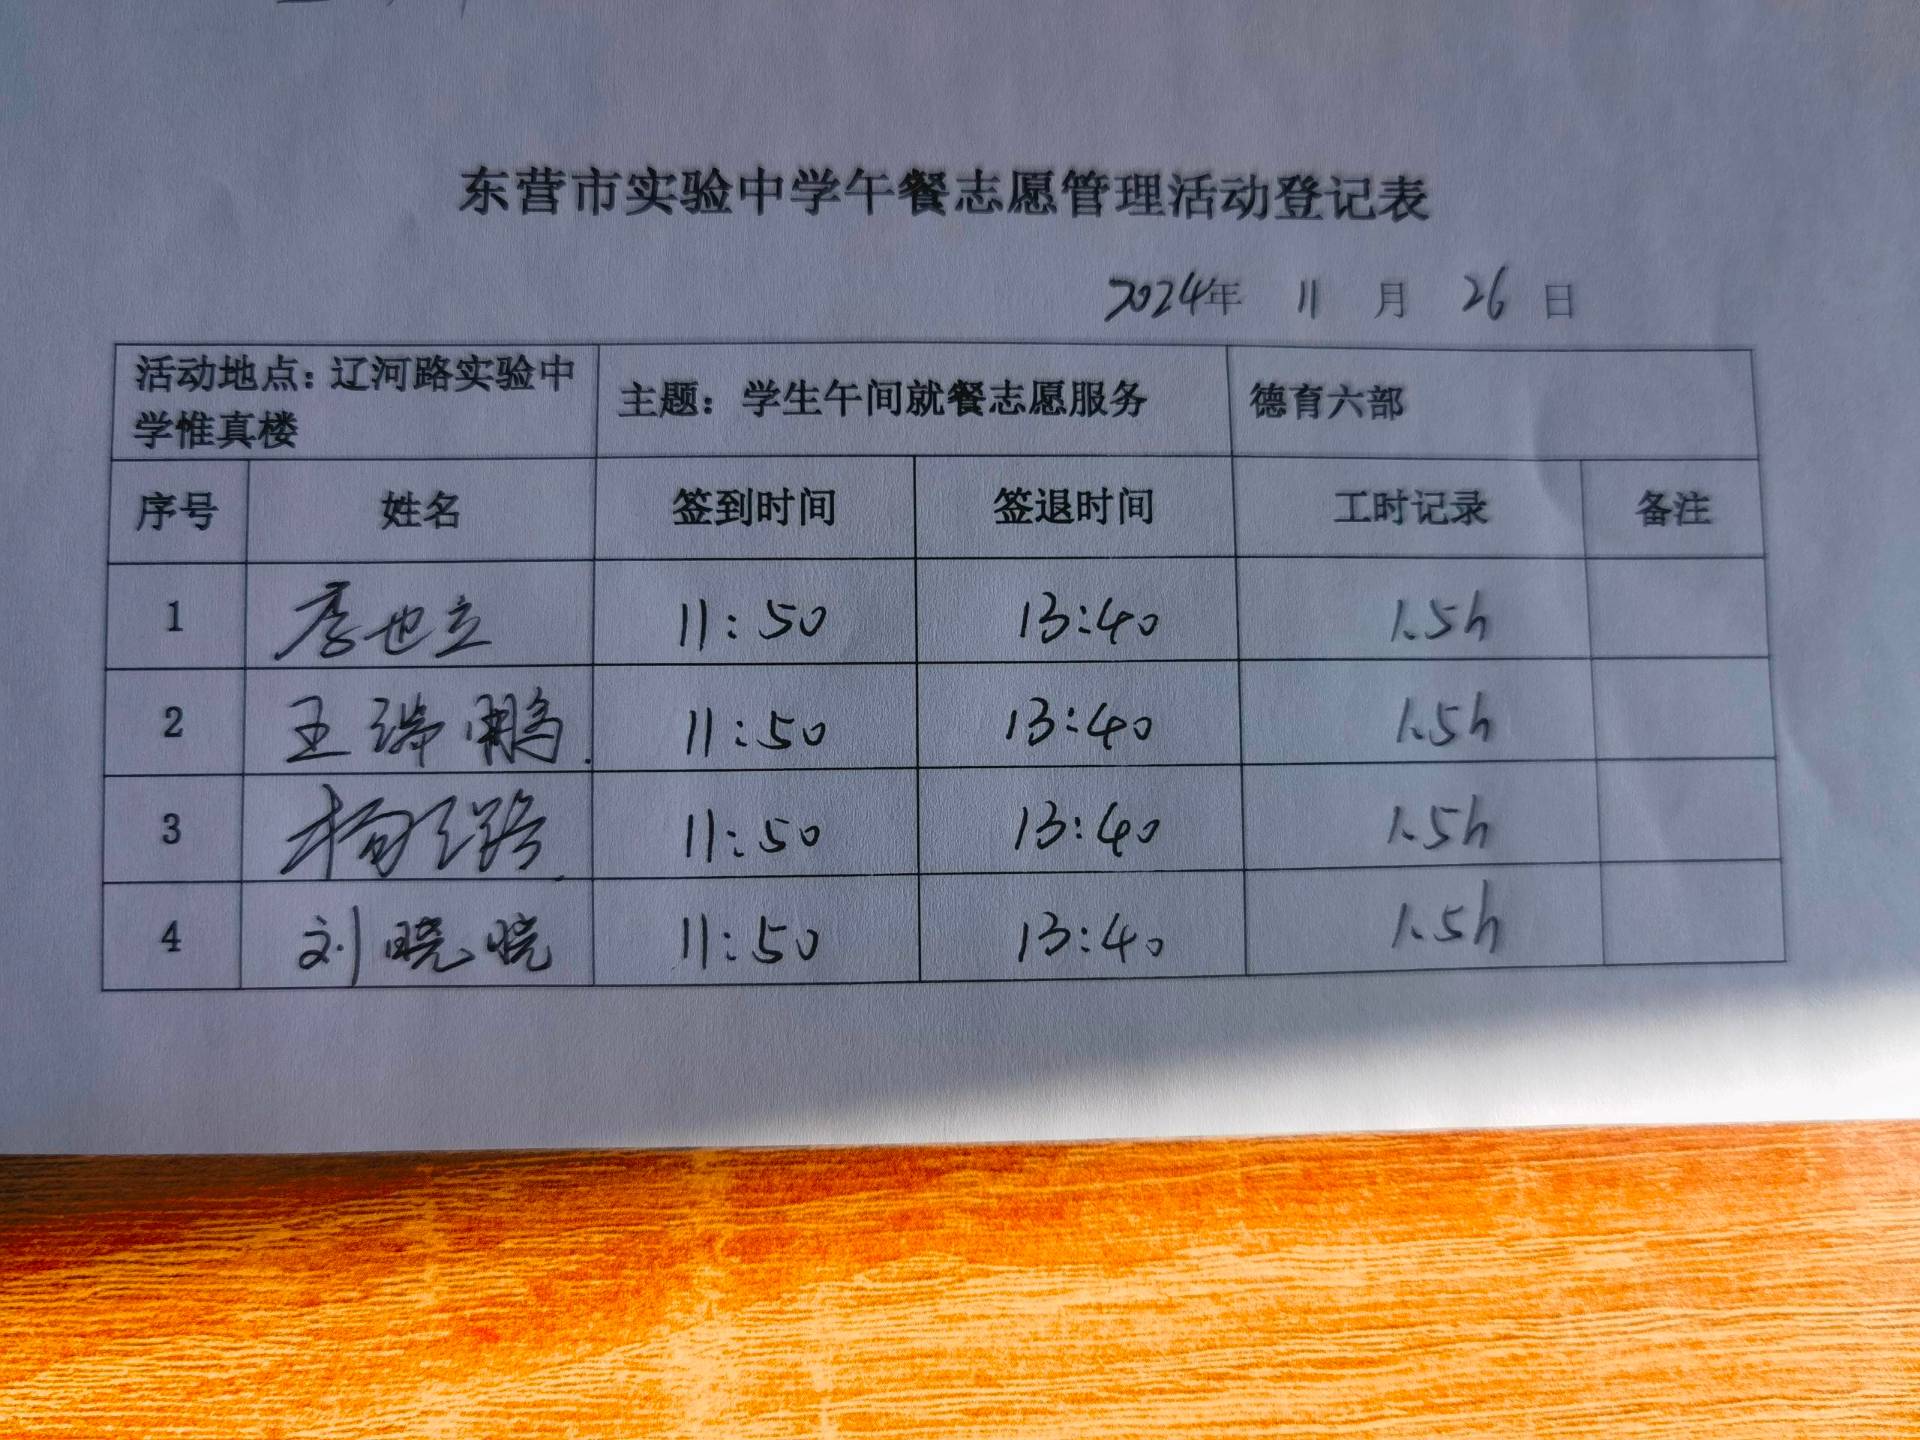 东营市实验中学午餐志愿管理活动登记表
2024年 11 月 26 日
活动地点：辽河路实验中
学惟真楼
主题：学生午间就餐志愿服务
德育六部
序号 姓名 签到时间 签退时间 工时记录 备注
1 李也立 11:50 13:40 1.5h
2 王瑞鹏. 11:50 13:40 1.5h
3 11:50 13:40 1.5h
4 刘晓晓 11:50 13:40 1.5h